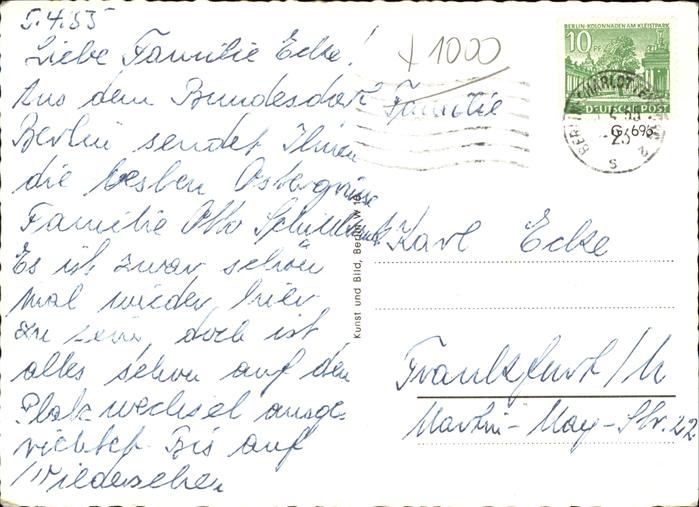 5.4.55
Liebe Familie Ecke!
Aus dem Bundesdorf
Berlin sendet Ihnen
die besten Ostergrüsse
Familie Otto
Es ist zwar schön
mal wieder hier
zu sein, doch ist
alles schon auf den
Platzwechsel ausge-
richtet. Bis auf
Wiedersehen
+ 1000
BERLIN-KOLONNADEN AM KLEISTPARK
10 PF
DEUTSCHE POST
BERLIN-CHARLOTTENBURG 2
Kunst und Bild, Berlin W 15
Familie
Karl Ecke
Frankfurt/M
Martin-May-Str. 22